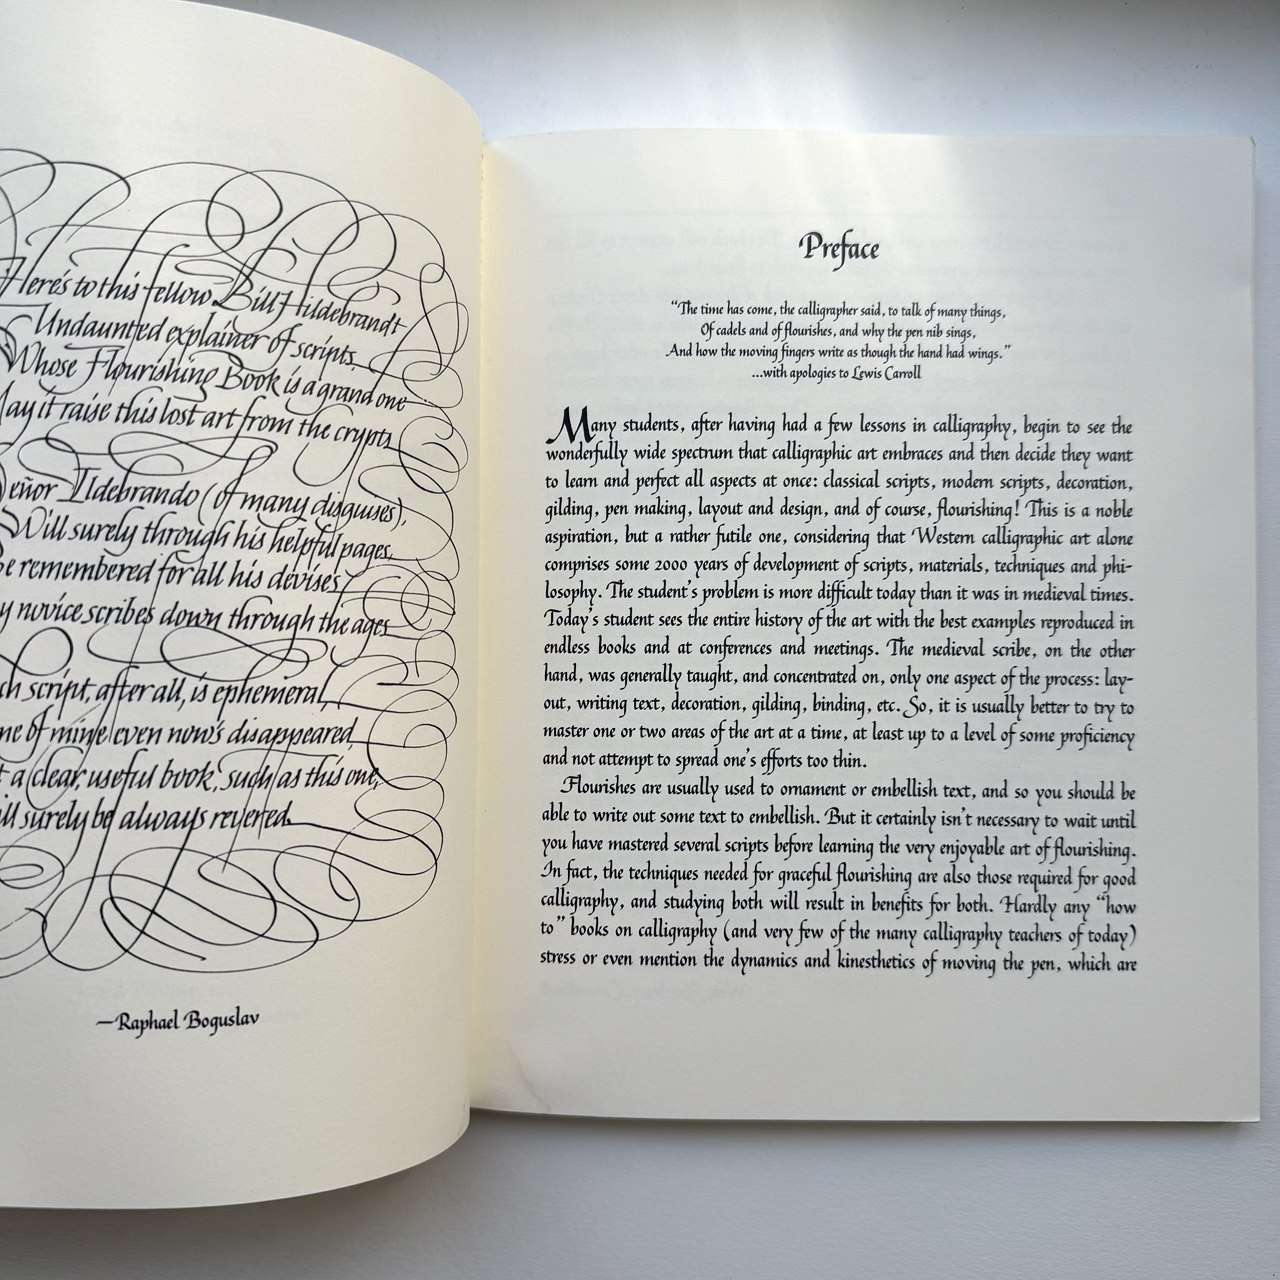 Here's to this fellow, Bill Hildebrandt
Undaunted explainer of scripts,
Whose Flourishing Book is a grand one
May it raise this lost art from the crypts.
Señor Ildebrando (of many disguises),
Will surely through his helpful pages,
Be remembered for all his devises
By novice scribes down through the ages.
script, after all, is ephemeral,
of mine even now's disappeared,
a clear, useful book, such as this one,
surely be always revered.
—Raphael Boguslav
Preface
“The time has come, the calligrapher said, to talk of many things,
Of cadels and of flourishes, and why the pen nib sings,
And how the moving fingers write as though the hand had wings.”
...with apologies to Lewis Carroll
Many students, after having had a few lessons in calligraphy, begin to see the
wonderfully wide spectrum that calligraphic art embraces and then decide they want
to learn and perfect all aspects at once: classical scripts, modern scripts, decoration,
gilding, pen making, layout and design, and of course, flourishing! This is a noble
aspiration, but a rather futile one, considering that Western calligraphic art alone
comprises some 2000 years of development of scripts, materials, techniques and phi-
losophy. The student's problem is more difficult today than it was in medieval times.
Today's student sees the entire history of the art with the best examples reproduced in
endless books and at conferences and meetings. The medieval scribe, on the other
hand, was generally taught, and concentrated on, only one aspect of the process: lay-
out, writing text, decoration, gilding, binding, etc. So, it is usually better to try to
master one or two areas of the art at a time, at least up to a level of some proficiency
and not attempt to spread one's efforts too thin.
Flourishes are usually used to ornament or embellish text, and so you should be
able to write out some text to embellish. But it certainly isn't necessary to wait until
you have mastered several scripts before learning the very enjoyable art of flourishing.
In fact, the techniques needed for graceful flourishing are also those required for good
calligraphy, and studying both will result in benefits for both. Hardly any “how
to” books on calligraphy (and very few of the many calligraphy teachers of today)
stress or even mention the dynamics and kinesthetics of moving the pen, which are